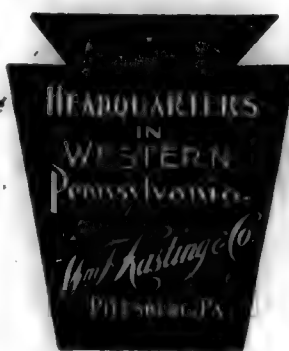 HEADQUARTERS
IN
WESTERN
Pennsylvania.
Wm F Kasting & Co.
PITTSBURG, PA